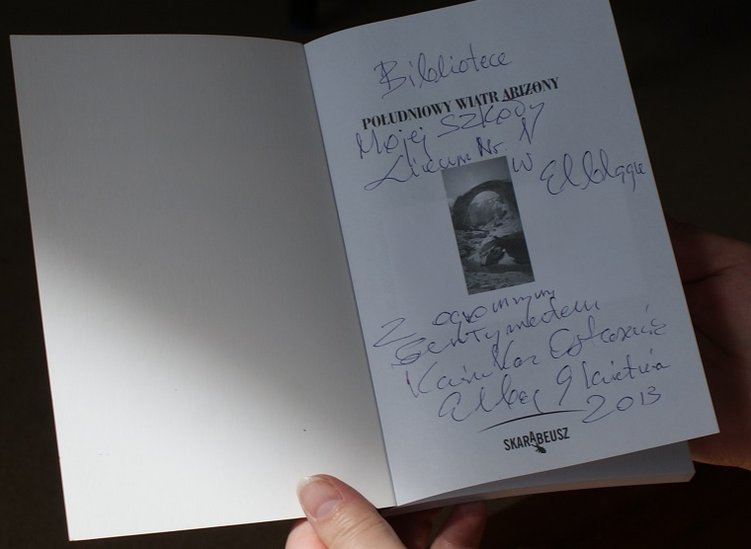 Bibliotece
POŁUDNIOWY WIATR ARIZONY
Mojej Szkoły
Liceum Nr. 1
w Elblągu
Z ogromnym
Sentymentem
9 kwietnia
2013
SKARABEUSZ